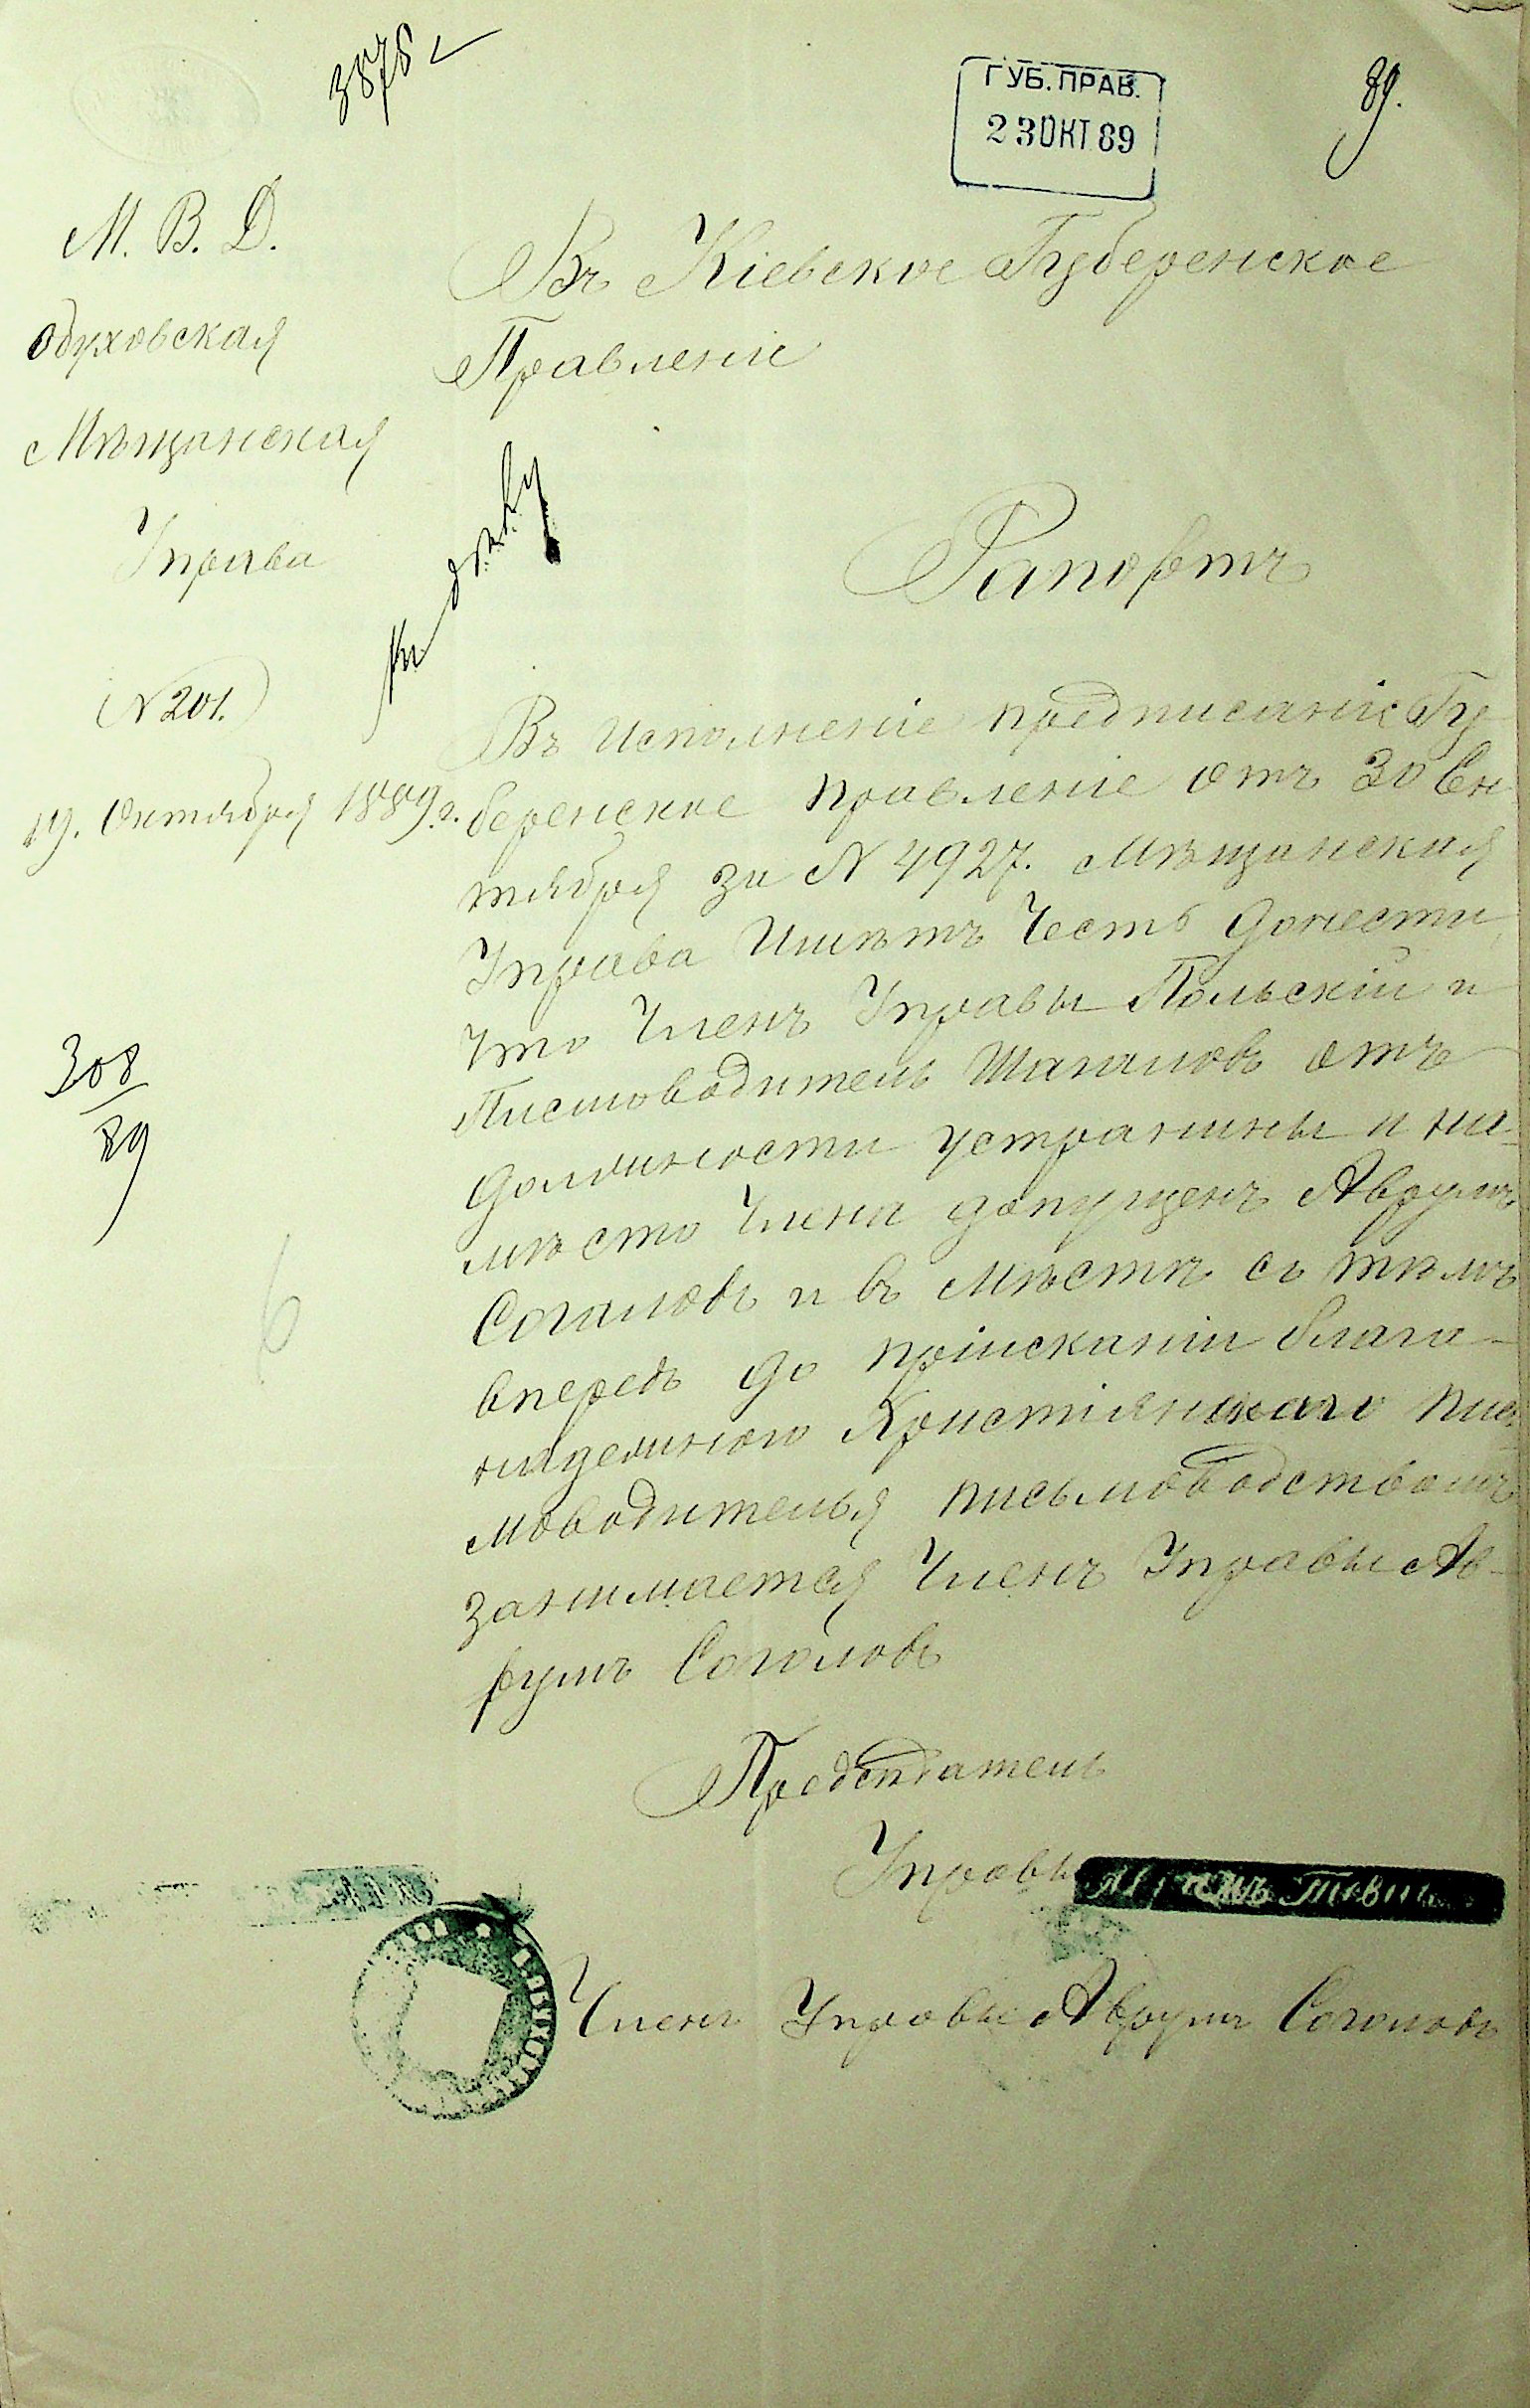 3878
ГУБ. ПРАВ.
23 ОКТ 89
89.
М. В. Д.
Обуховская
Мѣщанская
Управа
N 201.
19. Октября 1889 г.
308
89
Въ Кіевское Губеренское
Правленіе
Рапортъ
Въ исполненіе предписаніе Гу
беренское правленіе отъ 30 Сен
тября за N 4927. Мѣщанская
Управа Имѣтъ Честь донести
Что Членъ Управы Польскій и
Писмоводитель Шапаловъ отъ
должности устранины и на-
мѣсто Члена допущенъ Аврумъ
Соголовъ и въ Мѣстѣ съ тѣмъ
впредъ до пріисканіи блага-
надежного Христіянскаго пис
моводителья письмоводствомъ
занимается Членъ Управы Ав-
румъ Соголовъ
Председатель
Управы
Членъ Управы Аврумъ Соголовъ